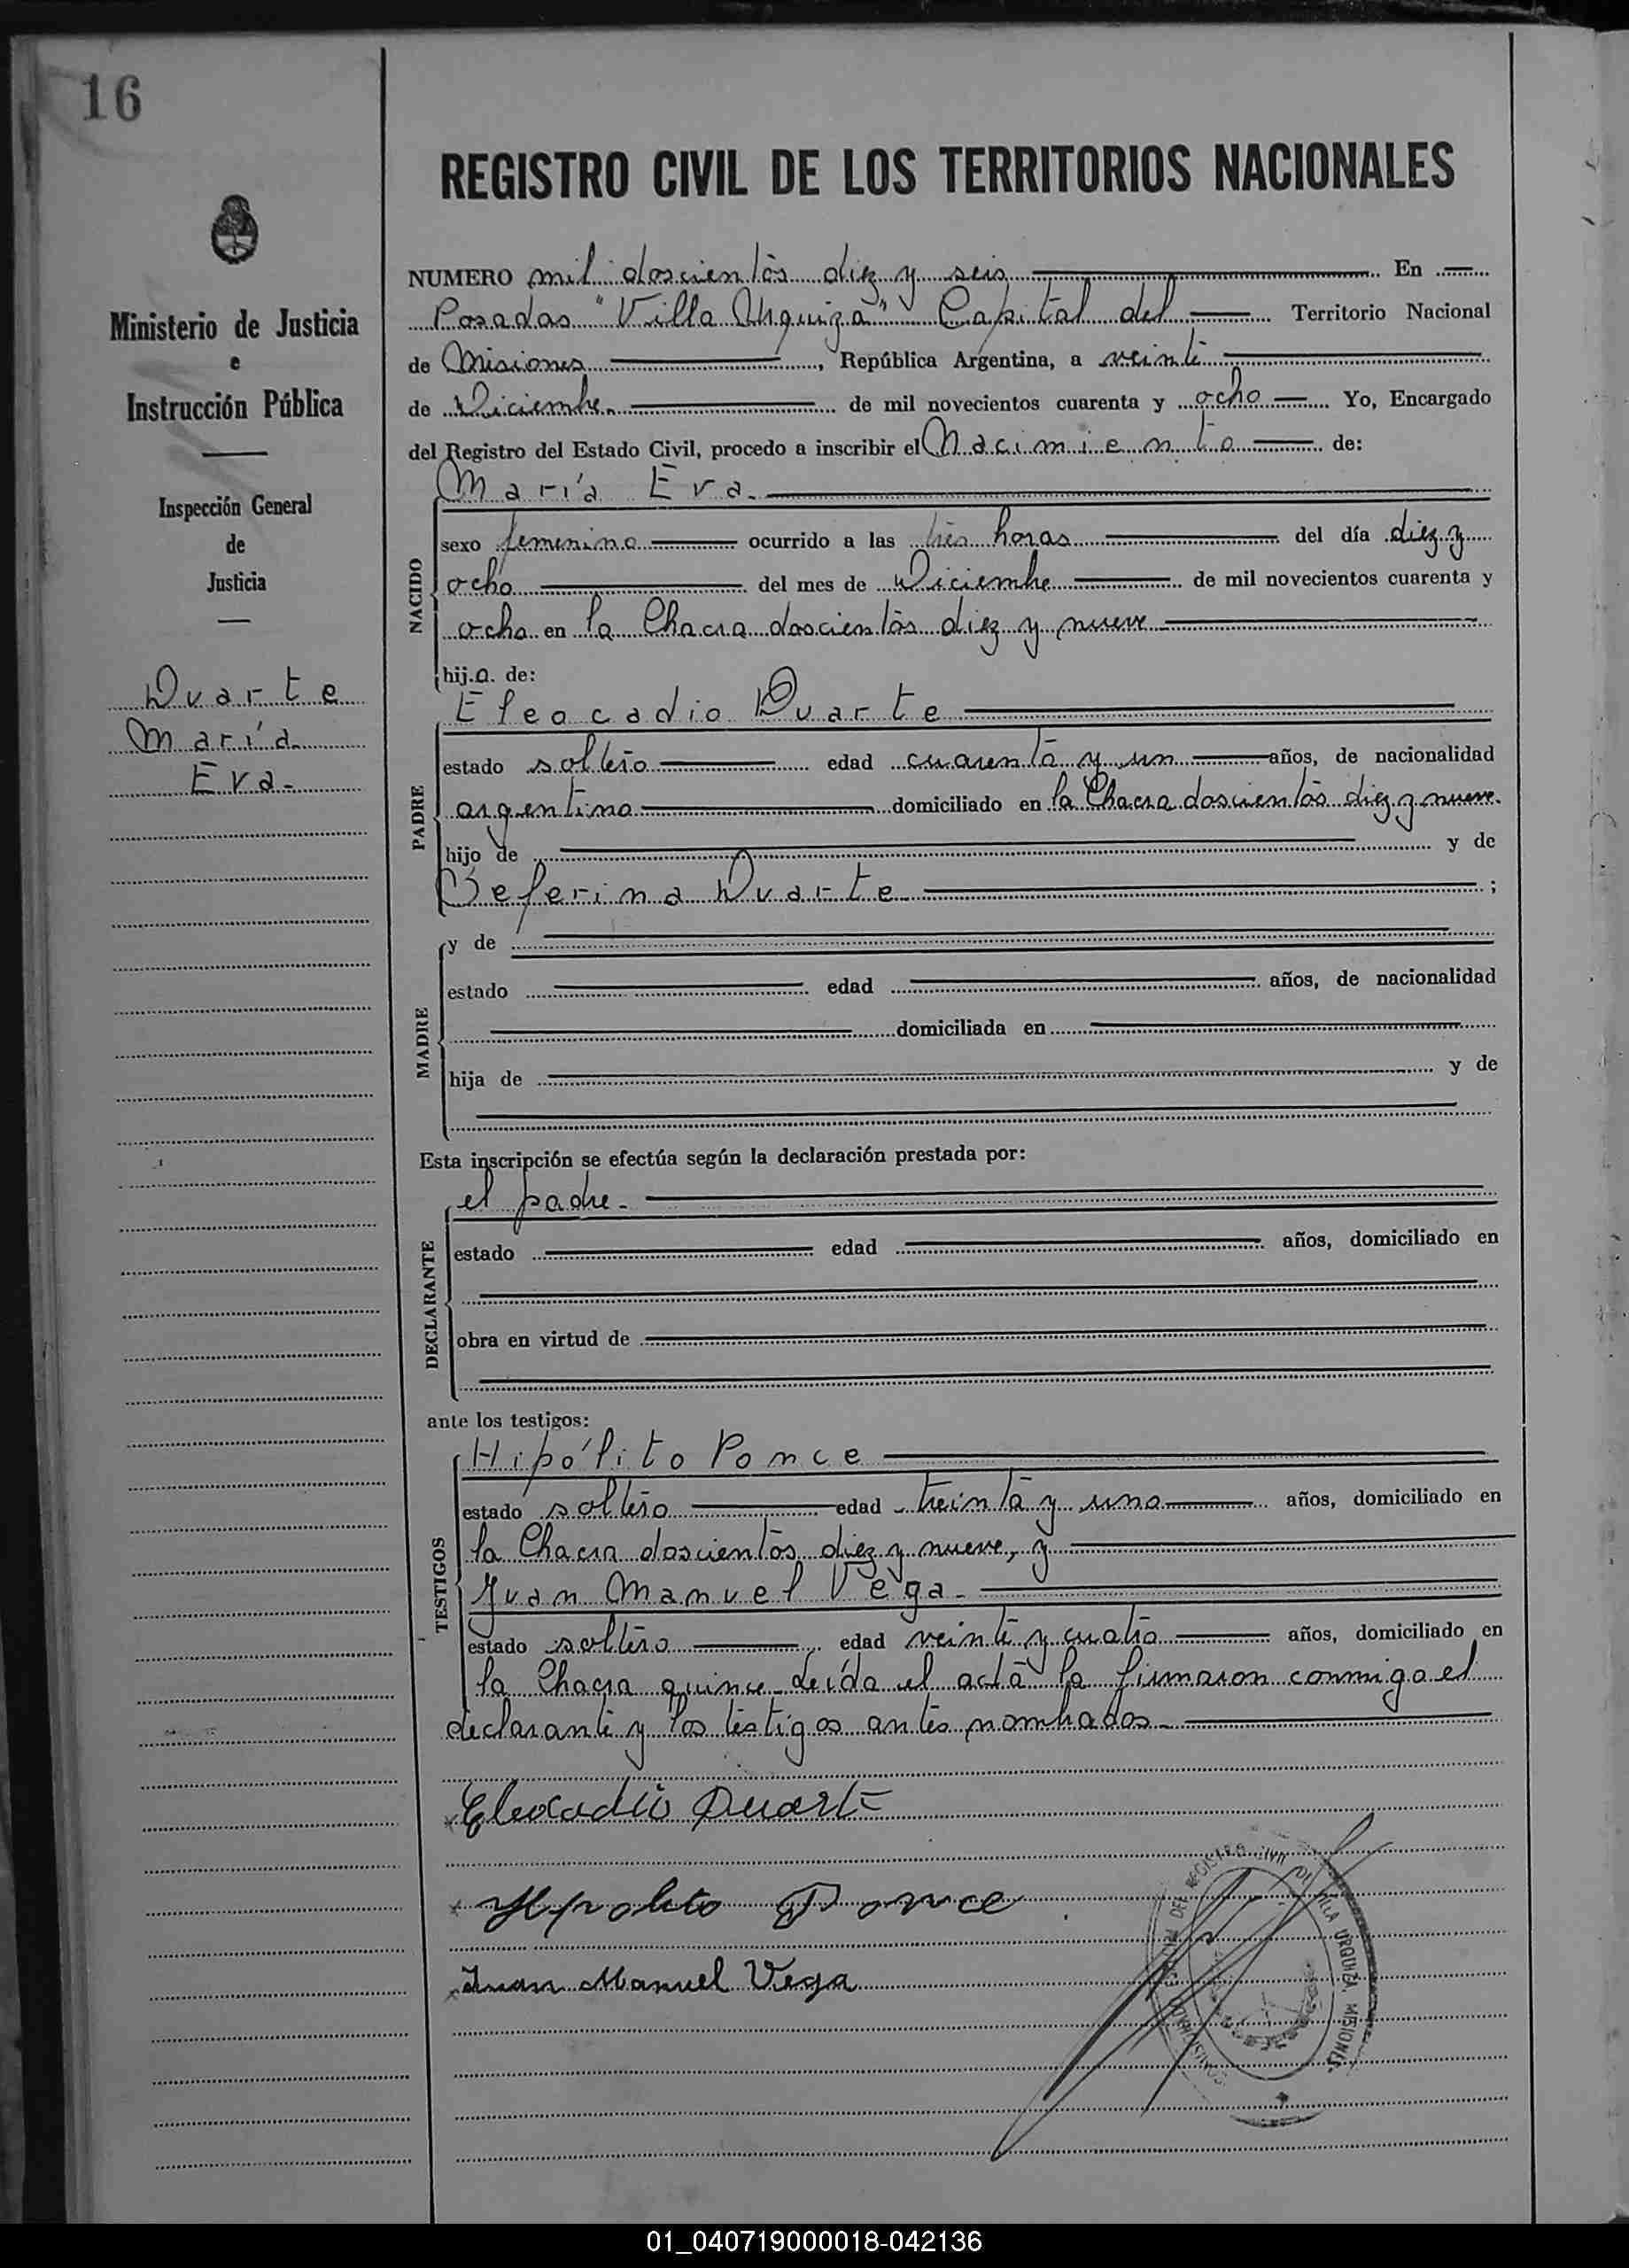 16
REGISTRO CIVIL DE LOS TERRITORIOS NACIONALES
Ministerio de Justicia
e
Instrucción Pública
Inspección General
de
Justicia
Duarte
María
Eva.
NUMERO mil doscientos diez y seis En
Posadas "Villa Urquiza" Capital del Territorio Nacional
de Misiones, República Argentina, a veinte
de Diciembre. de mil novecientos cuarenta y ocho Yo, Encargado
del Registro del Estado Civil, procedo a inscribir el Nacimiento de:
María Eva.
NACIDO
sexo femenino ocurrido a las tres horas del día diez y
ocho del mes de Diciembre de mil novecientos cuarenta y
ocho en la Chacra doscientos diez y nueve
hija. de:
Eleocadio Duarte
PADRE
estado soltero edad cuarenta y un años, de nacionalidad
argentino domiciliado en la Chacra doscientos diez y nueve.
hijo de y de
Ceferina Duarte ;
MADRE
y de
estado edad años, de nacionalidad
domiciliada en
hija de y de
Esta inscripción se efectúa según la declaración prestada por:
el padre.
DECLARANTE
estado edad años, domiciliado en
obra en virtud de
ante los testigos:
Hipólito Ponce
TESTIGOS
estado soltero edad treinta y uno años, domiciliado en
la Chacra doscientos diez y nueve, y
Juan Manuel Vega.
estado soltero edad veinte y cuatro años, domiciliado en
la Chacra quince. Leída el acta la firmaron conmigo el
declarante y los testigos antes nombrados.
Eleocadio Duarte
Hipolito Ponce
Juan Manuel Vega
DEL REGISTRO CIVIL DE VILLA URQUIZA, MISIONES
01_040719000018-042136